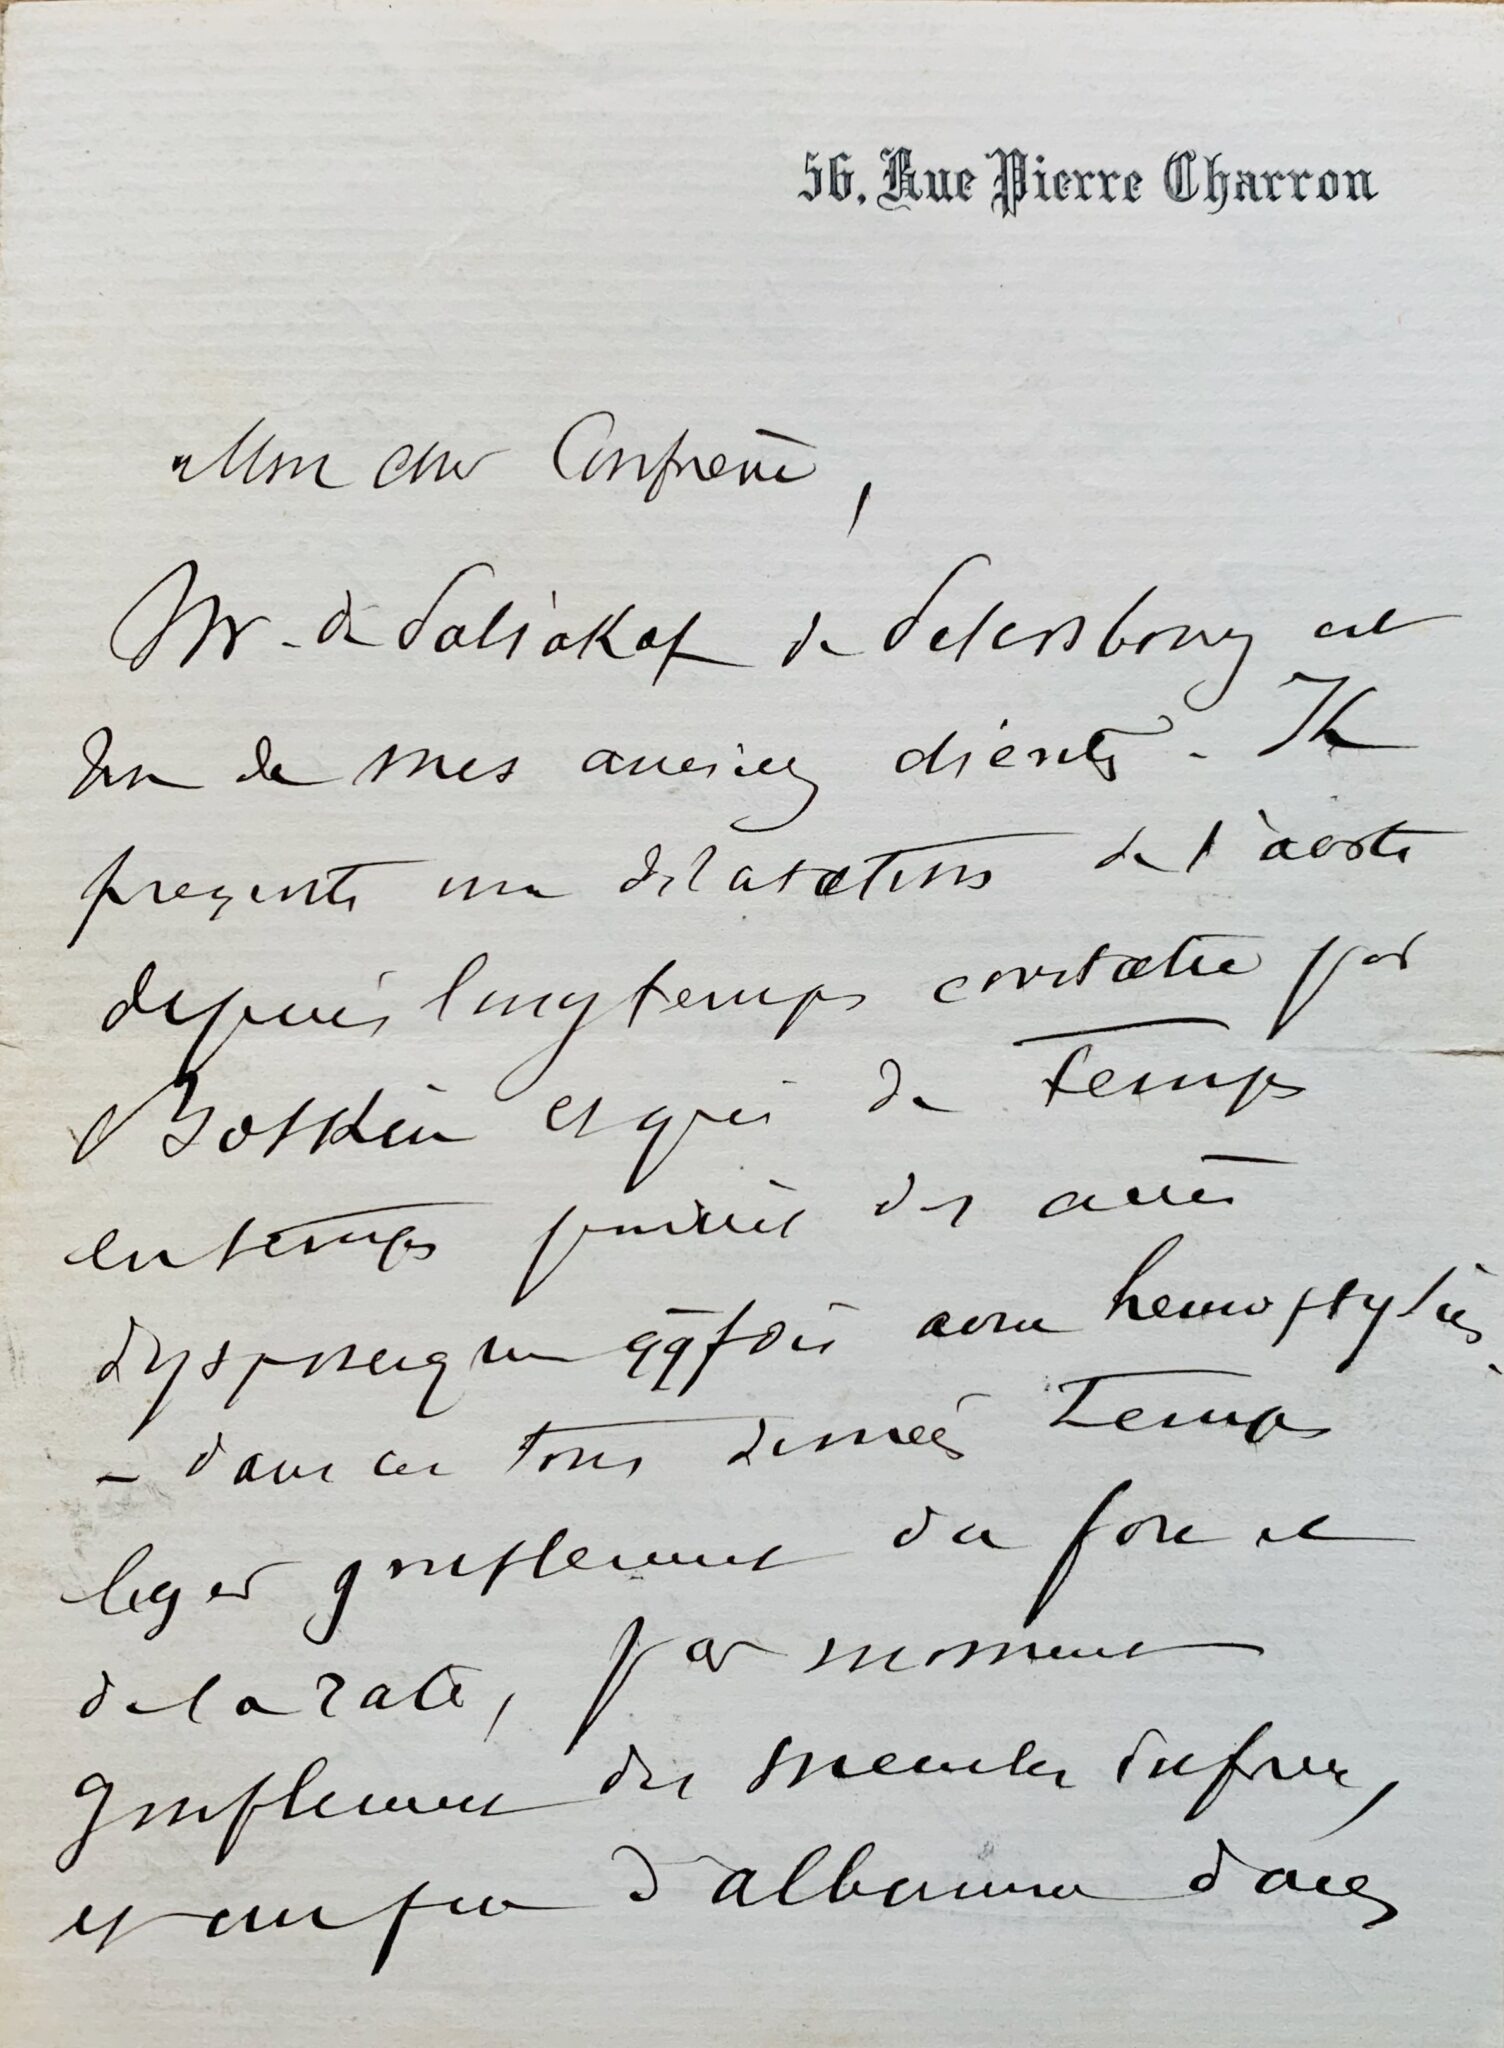 56, Rue Pierre Charron
Mon cher Confrère,
Mr. de de Petersbourg est
un de mes anciens clients. Il
presente une dilatation de l'aorte
depuis longtemps constatée par
Botkin et qui de temps
en temps produit des accès
dyspneique qqfois avec hemoptysies.
– dans ces tous derniers temps
leger gonflement du foie et
de la rate, par moment
gonflement des membres infer,
et un peu d'albumine dans